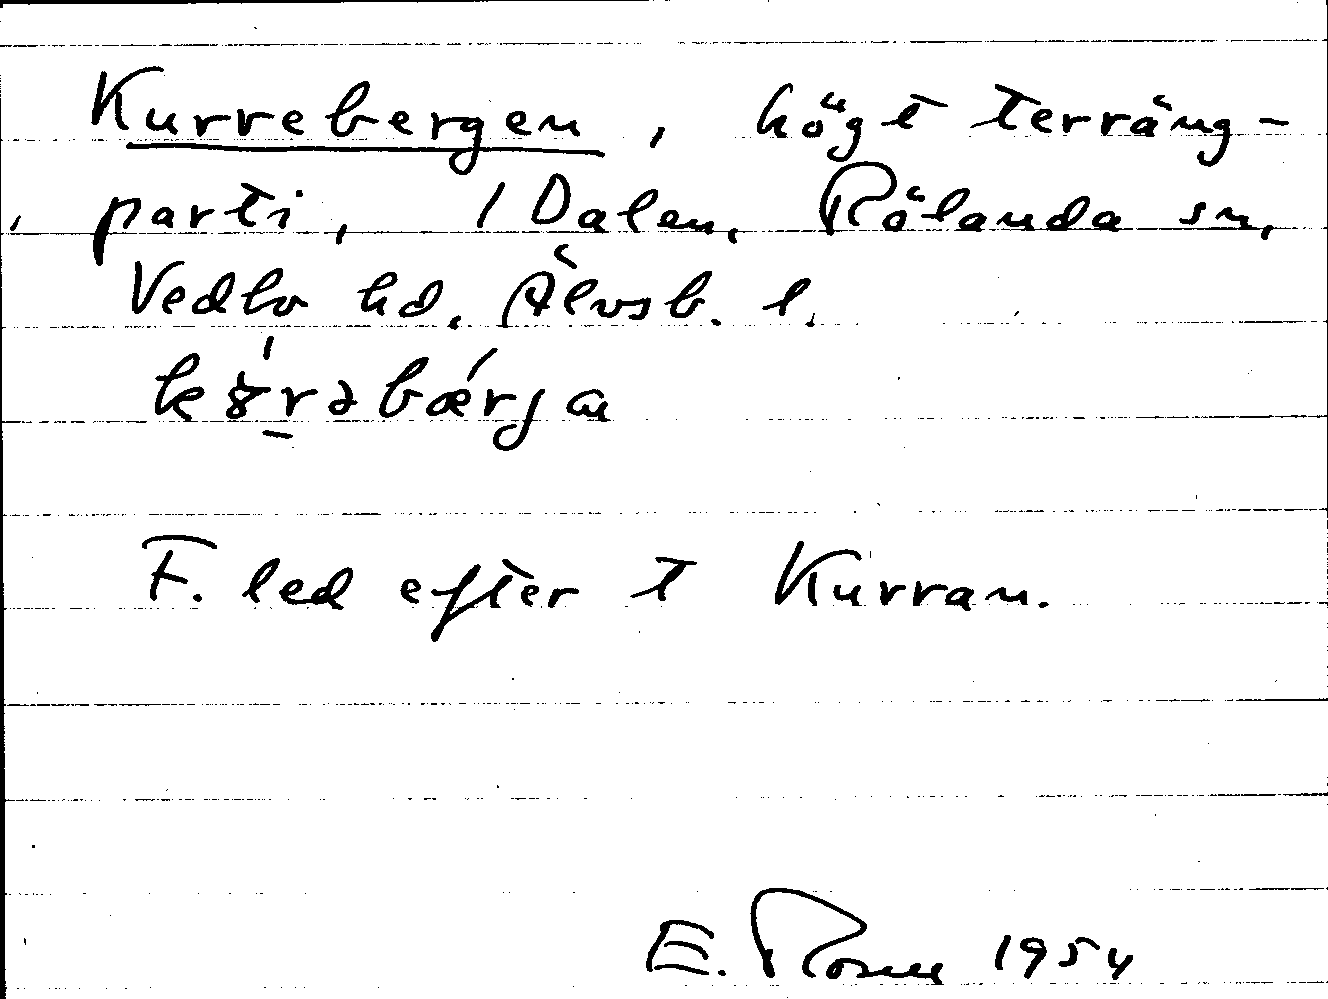 Kurrebergen, högt terräng-
parti, 1 Dalen, Rölanda sn,
Vedbo hd. Älvsb. l.
k8́rəbǽrja
F. led efter t Kurran.
E. Rosén 1954